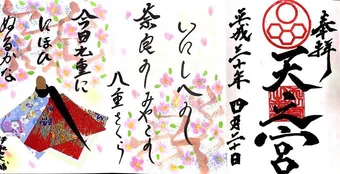 奉拝
天之宮
平成三十年 四月二十日
いにしへの
奈良のみやこの
八重さくら
今日九重に
にほひ
ぬるかな